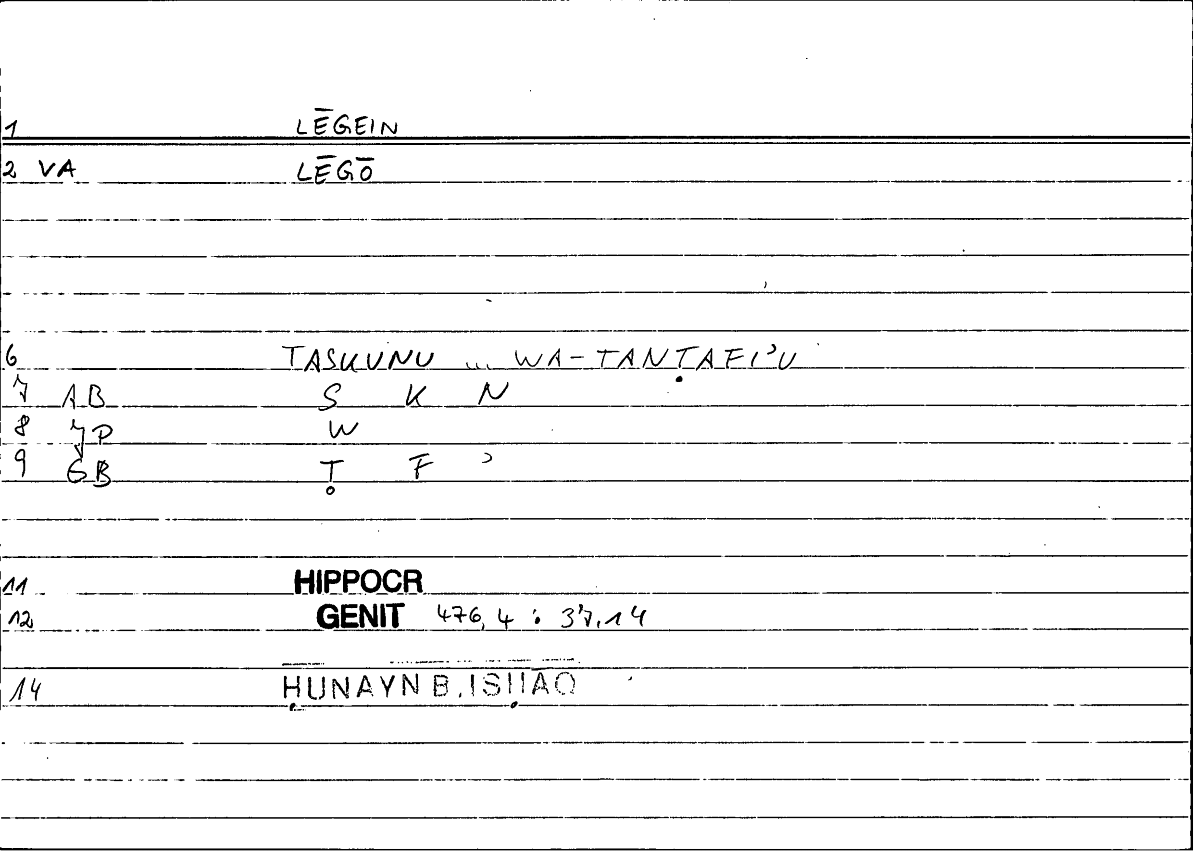 1 LĒGEIN
2 VA LĒGŌ
6 TASKUNU ... WA-TANṬAFIʾU
7 AB S K N
8 JP W
9 GB Ṭ F ʾ
11 HIPPOCR
12 GENIT 476,4 : 37,14
14 ḤUNAYN B. ISḤĀQ